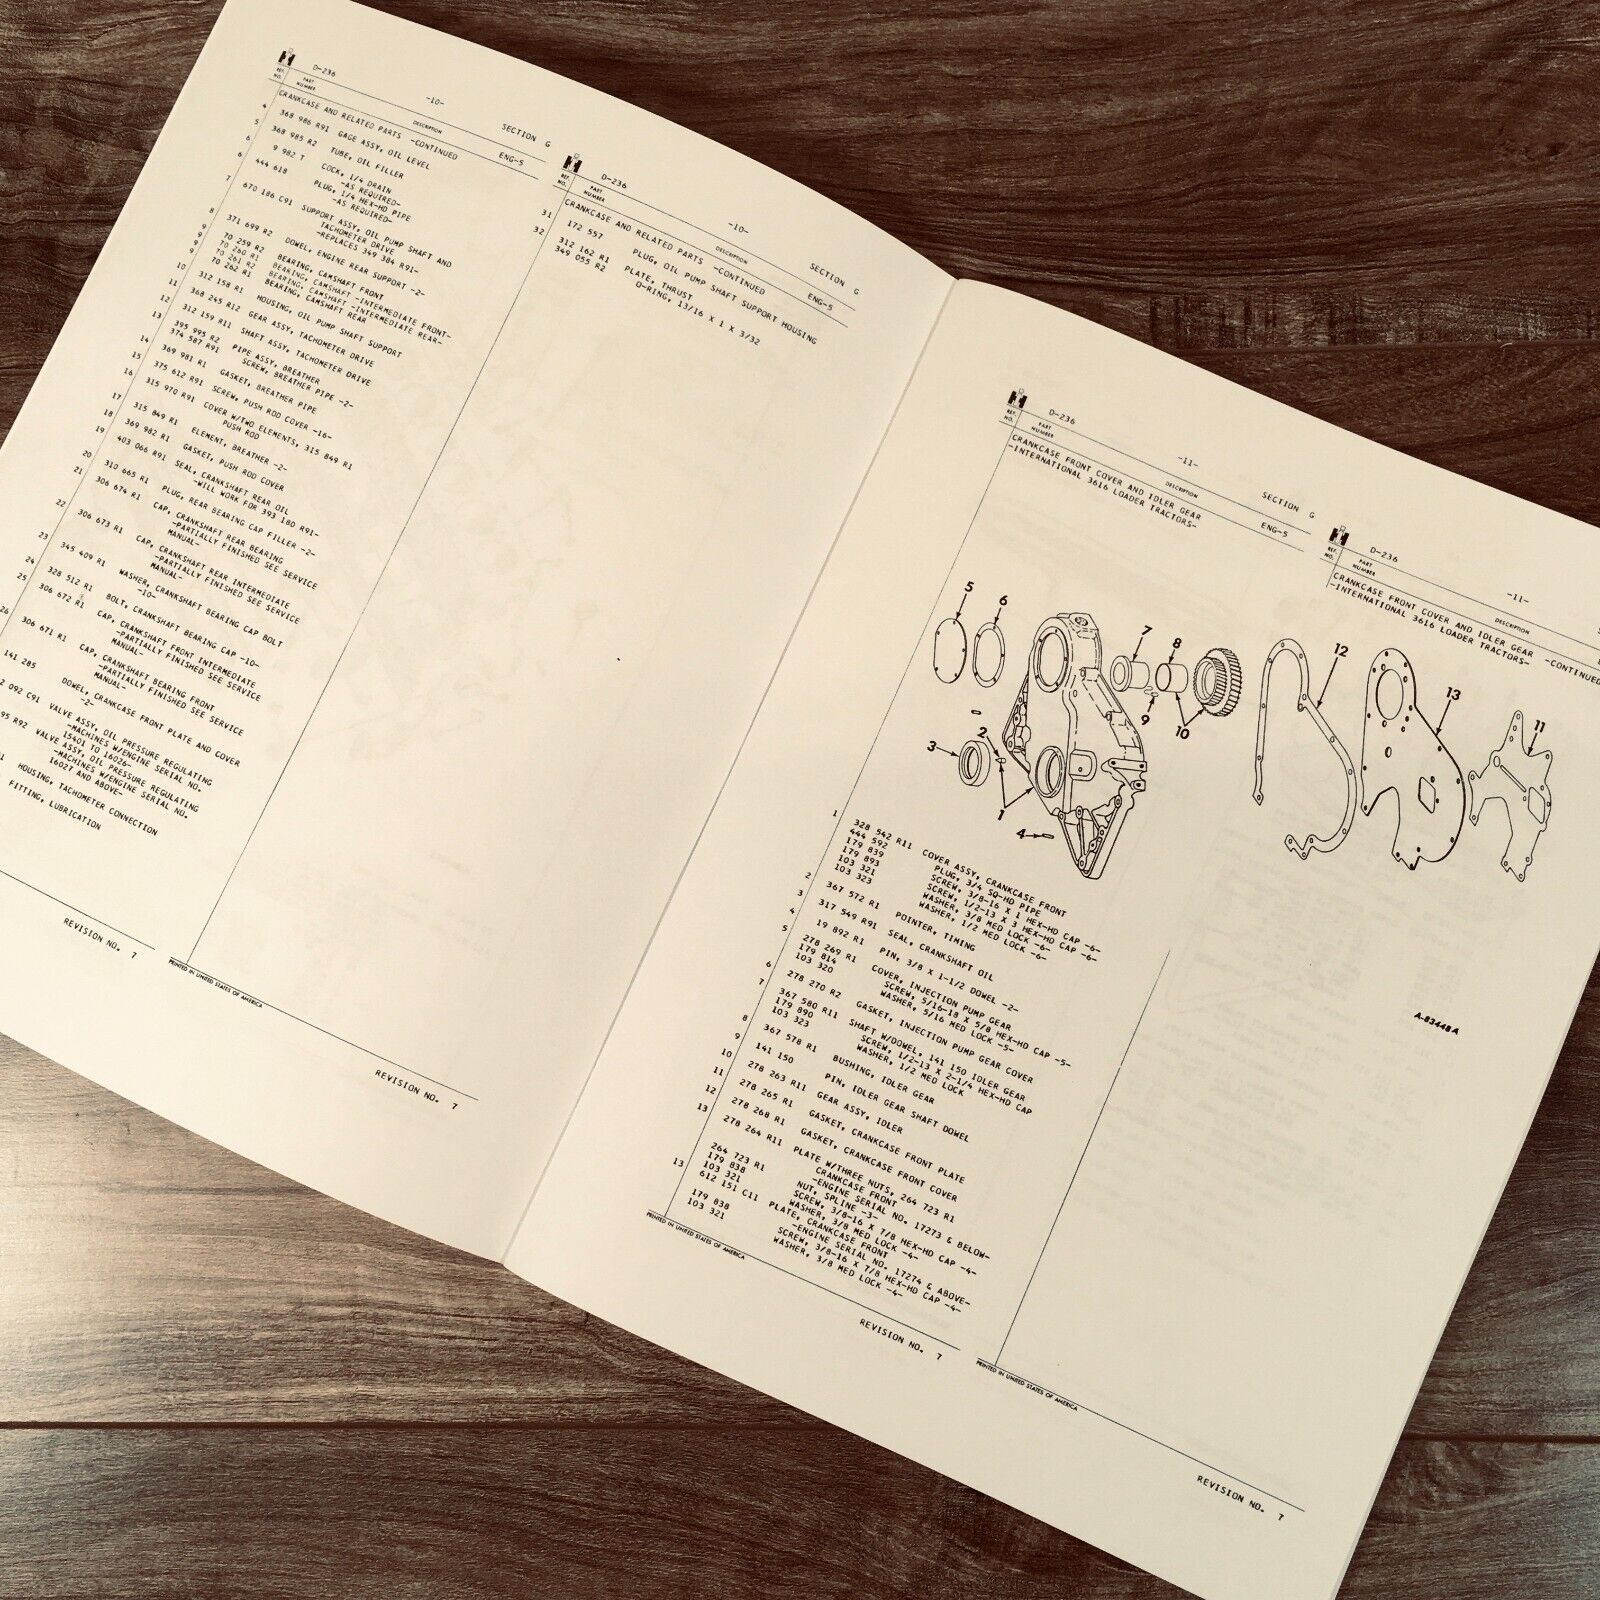 D-236
-10-
SECTION G
REF. NO. PART NUMBER DESCRIPTION ENG-5
CRANKCASE AND RELATED PARTS -CONTINUED
4 368 986 R91 GAGE ASSY, OIL LEVEL
5 368 985 R2 TUBE, OIL FILLER
6 9 982 T COCK, 1/4 DRAIN
-AS REQUIRED-
6 444 618 PLUG, 1/4 HEX-HD PIPE
-AS REQUIRED-
7 670 186 C91 SUPPORT ASSY, OIL PUMP SHAFT AND
TACHOMETER DRIVE
-REPLACES 349 384 R91-
8 371 699 R2 DOWEL, ENGINE REAR SUPPORT -2-
9 70 259 R2 BEARING, CAMSHAFT FRONT
9 70 260 R1 BEARING, CAMSHAFT -INTERMEDIATE FRONT-
9 70 261 R2 BEARING, CAMSHAFT -INTERMEDIATE REAR-
9 70 262 R1 BEARING, CAMSHAFT REAR
10 312 158 R1 HOUSING, OIL PUMP SHAFT SUPPORT
11 368 245 R12 GEAR ASSY, TACHOMETER DRIVE
12 312 159 R11 SHAFT ASSY, TACHOMETER DRIVE
13 395 995 R2 PIPE ASSY, BREATHER
374 587 R91 SCREW, BREATHER PIPE -2-
14 369 981 R1 GASKET, BREATHER PIPE
15 375 612 R91 SCREW, PUSH ROD COVER -16-
16 315 970 R91 COVER W/TWO ELEMENTS, 315 849 R1
PUSH ROD
17 315 849 R1 ELEMENT, BREATHER -2-
18 369 982 R1 GASKET, PUSH ROD COVER
19 403 066 R91 SEAL, CRANKSHAFT REAR OIL
-WILL WORK FOR 393 180 R91-
20 310 665 R1 PLUG, REAR BEARING CAP FILLER -2-
21 306 674 R1 CAP, CRANKSHAFT REAR BEARING
-PARTIALLY FINISHED SEE SERVICE
MANUAL-
22 306 673 R1 CAP, CRANKSHAFT REAR INTERMEDIATE
-PARTIALLY FINISHED SEE SERVICE
MANUAL-
23 345 409 R1 WASHER, CRANKSHAFT BEARING CAP BOLT
-10-
24 328 512 R1 BOLT, CRANKSHAFT BEARING CAP -10-
25 306 672 R1 CAP, CRANKSHAFT FRONT INTERMEDIATE
-PARTIALLY FINISHED SEE SERVICE
MANUAL-
26 306 671 R1 CAP, CRANKSHAFT BEARING FRONT
-PARTIALLY FINISHED SEE SERVICE
MANUAL-
141 285 DOWEL, CRANKCASE FRONT PLATE AND COVER
-2-
2 092 C91 VALVE ASSY, OIL PRESSURE REGULATING
-MACHINES W/ENGINE SERIAL NO.
15401 TO 16026-
95 R92 VALVE ASSY, OIL PRESSURE REGULATING
-MACHINES W/ENGINE SERIAL NO.
16027 AND ABOVE-
HOUSING, TACHOMETER CONNECTION
FITTING, LUBRICATION
REVISION NO. 7
D-236
-10-
SECTION G
REF. NO. PART NUMBER DESCRIPTION ENG-5
CRANKCASE AND RELATED PARTS -CONTINUED
31 172 557 PLUG, OIL PUMP SHAFT SUPPORT HOUSING
32 312 162 R1 PLATE, THRUST
349 055 R2 O-RING, 13/16 X 1 X 3/32
PRINTED IN UNITED STATES OF AMERICA
REVISION NO. 7
D-236
-11-
SECTION G
REF. NO. PART NUMBER DESCRIPTION ENG-5
CRANKCASE FRONT COVER AND IDLER GEAR
-INTERNATIONAL 3616 LOADER TRACTORS-
5
6
7
8
9
10
3
2
1
4
1 328 542 R11 COVER ASSY, CRANKCASE FRONT
444 592 PLUG, 3/4 SQ-HD PIPE
179 839 SCREW, 3/8-16 X 1 HEX-HD CAP -6-
179 893 SCREW, 1/2-13 X 3 HEX-HD CAP -6-
103 321 WASHER, 3/8 MED LOCK -6-
103 323 WASHER, 1/2 MED LOCK -6-
2 367 572 R1 POINTER, TIMING
3 317 549 R91 SEAL, CRANKSHAFT OIL
4 19 892 R1 PIN, 3/8 X 1-1/2 DOWEL -2-
5 278 269 R1 COVER, INJECTION PUMP GEAR
179 814 SCREW, 5/16-18 X 5/8 HEX-HD CAP -5-
103 320 WASHER, 5/16 MED LOCK -5-
6 278 270 R2 GASKET, INJECTION PUMP GEAR COVER
7 367 580 R11 SHAFT W/DOWEL, 141 150 IDLER GEAR
179 890 SCREW, 1/2-13 X 2-1/4 HEX-HD CAP
103 323 WASHER, 1/2 MED LOCK
8 367 578 R1 BUSHING, IDLER GEAR
9 141 150 PIN, IDLER GEAR SHAFT DOWEL
10 278 263 R11 GEAR ASSY, IDLER
11 278 265 R1 GASKET, CRANKCASE FRONT PLATE
12 278 268 R1 GASKET, CRANKCASE FRONT COVER
13 278 264 R11 PLATE W/THREE NUTS, 264 723 R1
CRANKCASE FRONT
-ENGINE SERIAL NO. 17273 & BELOW-
264 723 R1 NUT, SPLINE -3-
179 838 SCREW, 3/8-16 X 7/8 HEX-HD CAP -4-
103 321 WASHER, 3/8 MED LOCK -4-
13 612 151 C11 PLATE, CRANKCASE FRONT
-ENGINE SERIAL NO. 17274 & ABOVE-
179 838 SCREW, 3/8-16 X 7/8 HEX-HD CAP -4-
103 321 WASHER, 3/8 MED LOCK -4-
PRINTED IN UNITED STATES OF AMERICA
REVISION NO. 7
D-236
-11-
REF. NO. PART NUMBER DESCRIPTION
CRANKCASE FRONT COVER AND IDLER GEAR -CONTINUED
-INTERNATIONAL 3616 LOADER TRACTORS-
12
13
11
A-83448A
PRINTED IN UNITED STATES OF AMERICA
REVISION NO. 7